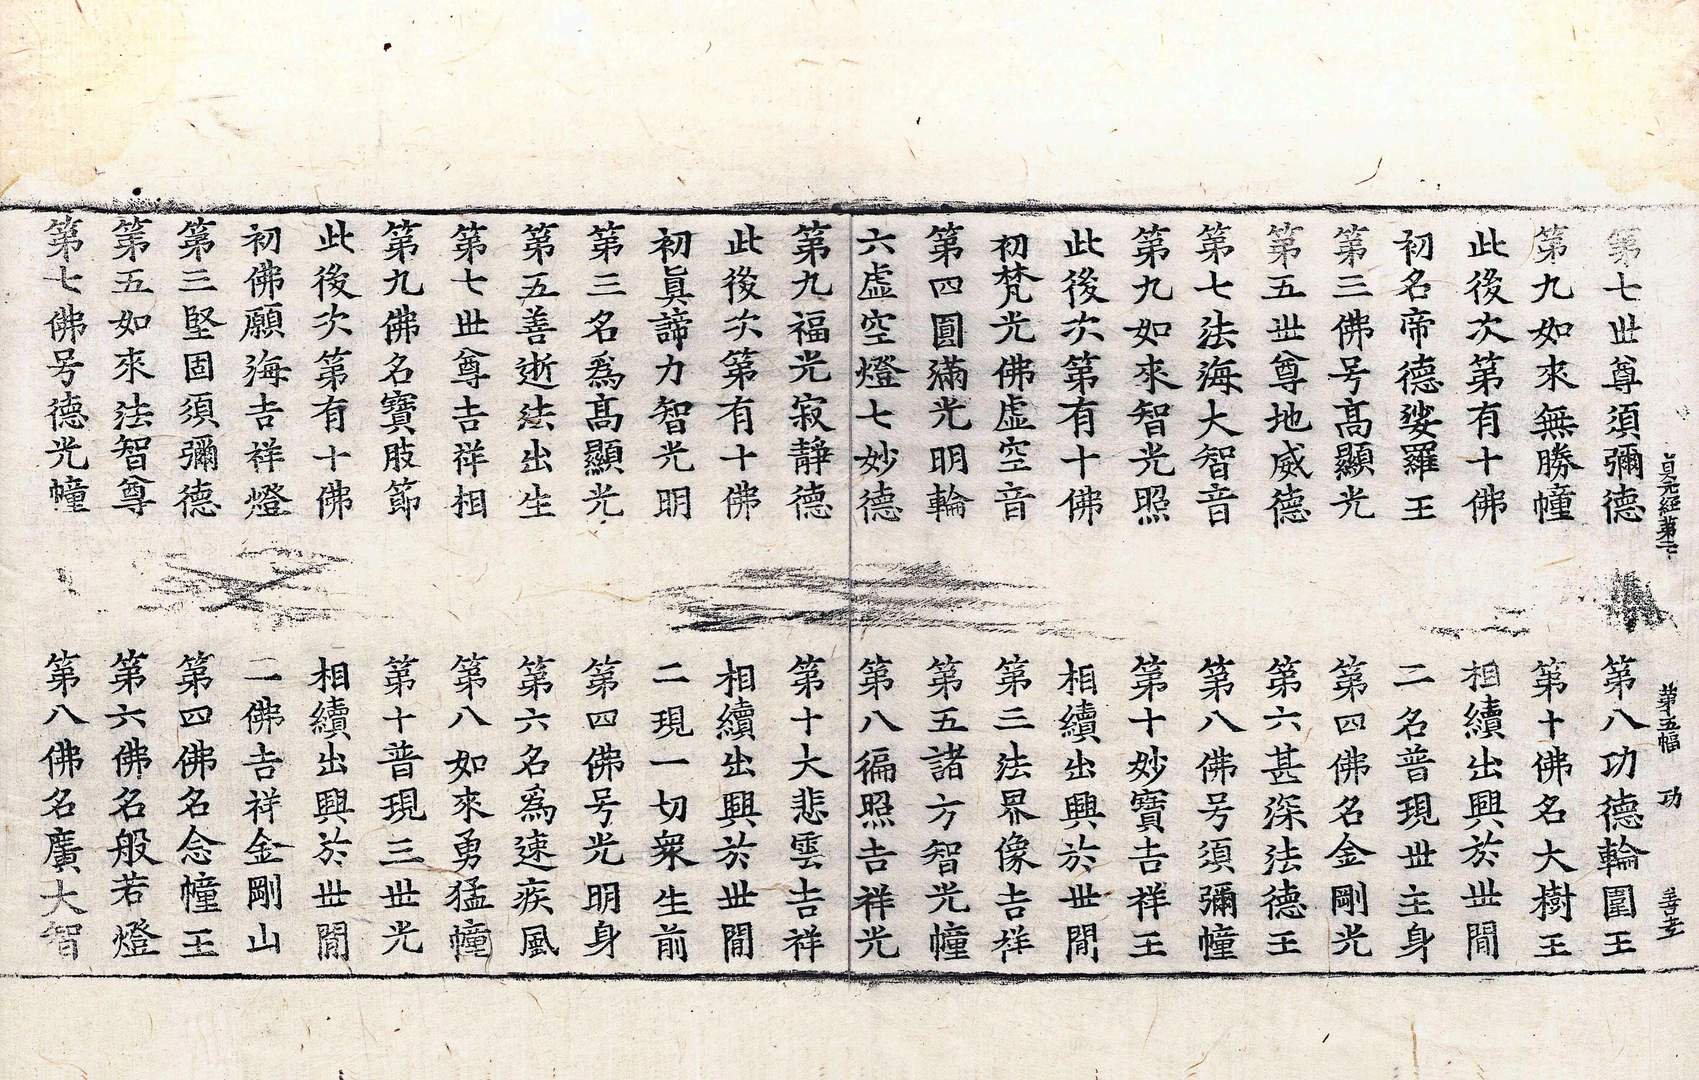 第七丗尊須彌德　第八功德輪圍王
第九如來無勝幢　第十佛名大樹王
此後次第有十佛　相續出興於丗閒
初名帝德娑羅王　二名普現丗主身
第三佛号髙顯光　第四佛名金剛光
第五丗尊地威德　第六甚深法德王
第七法海大智音　第八佛号須彌幢
第九如來智光照　第十妙寶吉祥王
此後次第有十佛　相續出興於丗閒
初梵光佛虛空音　第三法界像吉祥
第四圓滿光明輪　第五諸方智光幢
六虛空燈七妙德　第八徧照吉祥光
第九福光寂靜德　第十大悲雲吉祥
此後次第有十佛　相續出興於丗閒
初眞諦力智光明　二現一切衆生前
第三名爲髙顯光　第四佛号光明身
第五善逝法出生　第六名爲速疾風
第七丗尊吉祥相　第八如來勇猛幢
第九佛名寶肢節　第十普現三丗光
此後次第有十佛　相續出興於丗閒
初佛願海吉祥燈　二佛吉祥金剛山
第三堅固須彌德　第四佛名念幢王
第五如來法智尊　第六佛名般若燈
第七佛号德光幢　第八佛名廣大智
第五幅　功